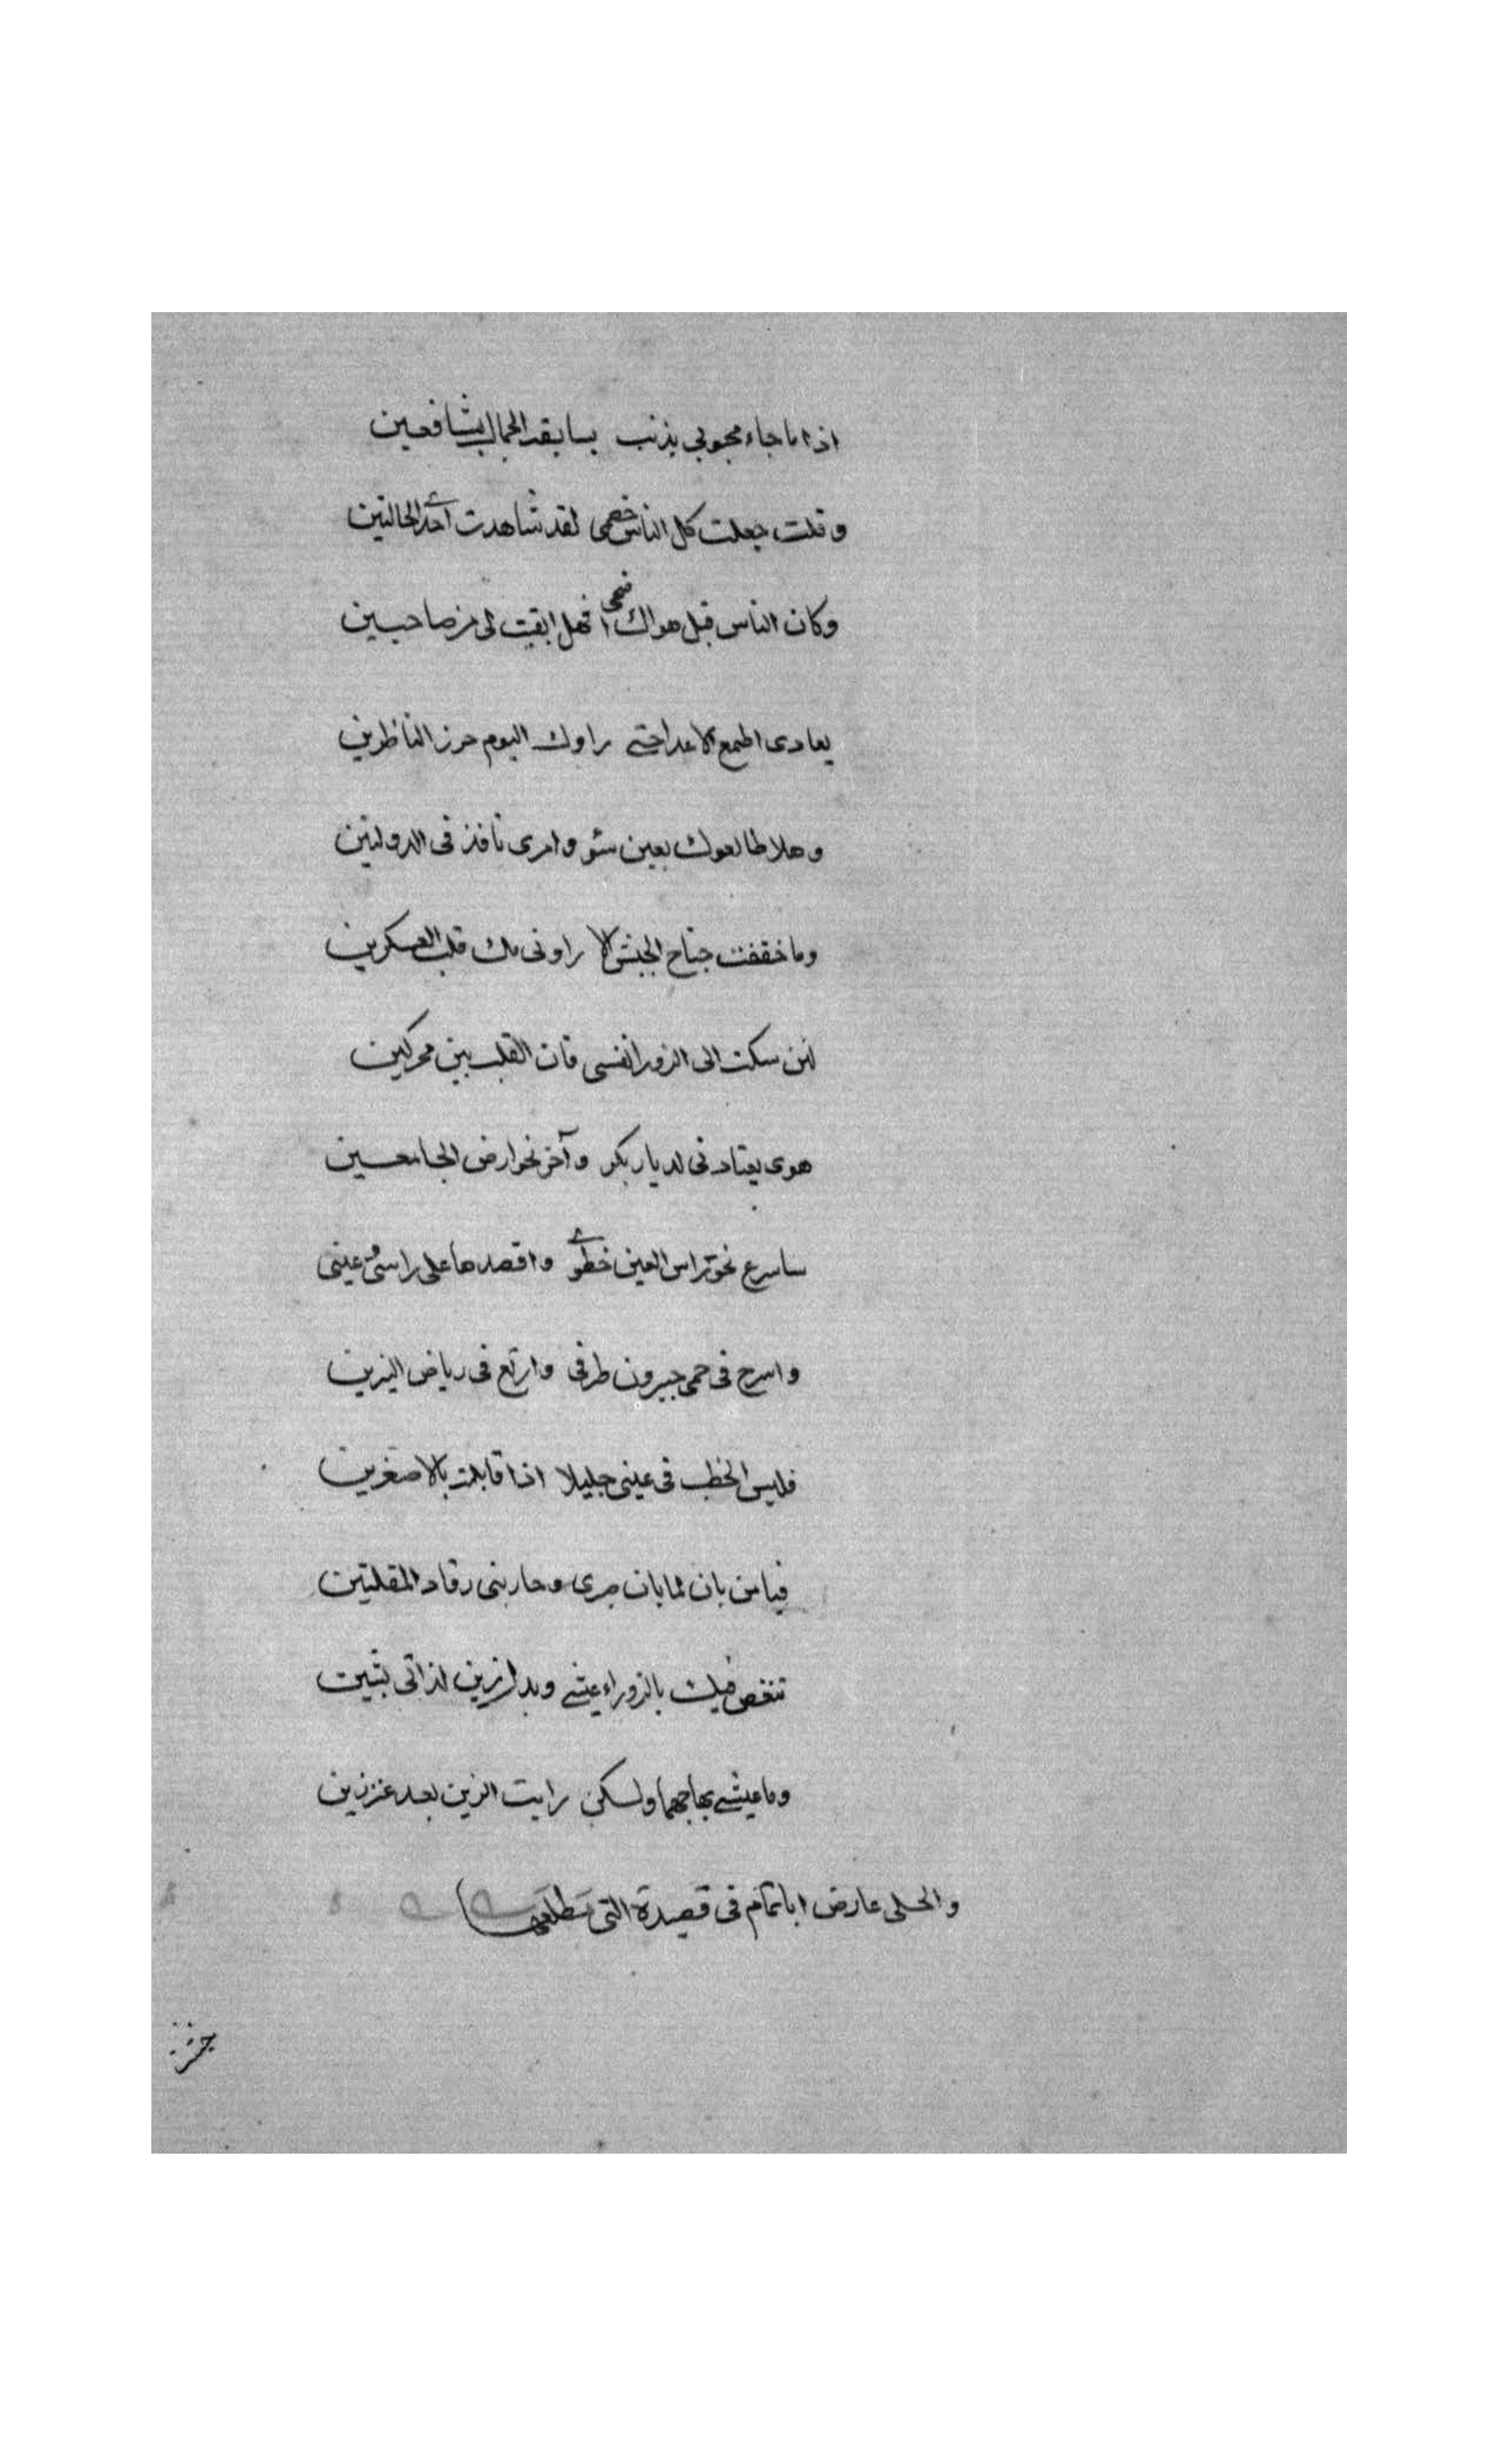 اذا ما جاء محبوبى بذنب يسابقه الجمال بشافعين
وقلت جعلت كل الناس خصمى لقد شاهدت احدى الحالتين
وكان الناس قبل هواك صحبى فهل ابقيت لى من صاحبين
يعادى اطمع الاعدا حتى راوك اليوم حرز الناظرين
وهلا طالعوك بعين سؤ وامرى نافذ فى الدولتين
وما خفقت جناح الجيش الا راونى ملك قلب العسكرين
لئن سكنت الى الزورا نفسى فان القلب بين محركين
هوى يقتادنى لديار بكر وآخر نحو ارض الجامعين
ساسرع نحو راس العين خطوى واقصدها على راسى وعينى
واسرح فى حمى جيرون طرفى وارتع فى رياض النيربين
فليس الخطب فى عينى جليلا اذا قابلت بالاصغرين
فيا من بان لما بان صبرى وحاربنى رقاد المقلتين
تنغص فيك بالزوراء عيشى وبدل زين لذاتى بشين
وما عيشى بها جهما ولكن رايت الزين بعدك غير زين
والحلى عارض اباتمام فى قصيدة التى مطلعها